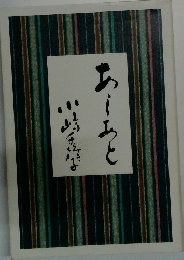 あしあと
小崎